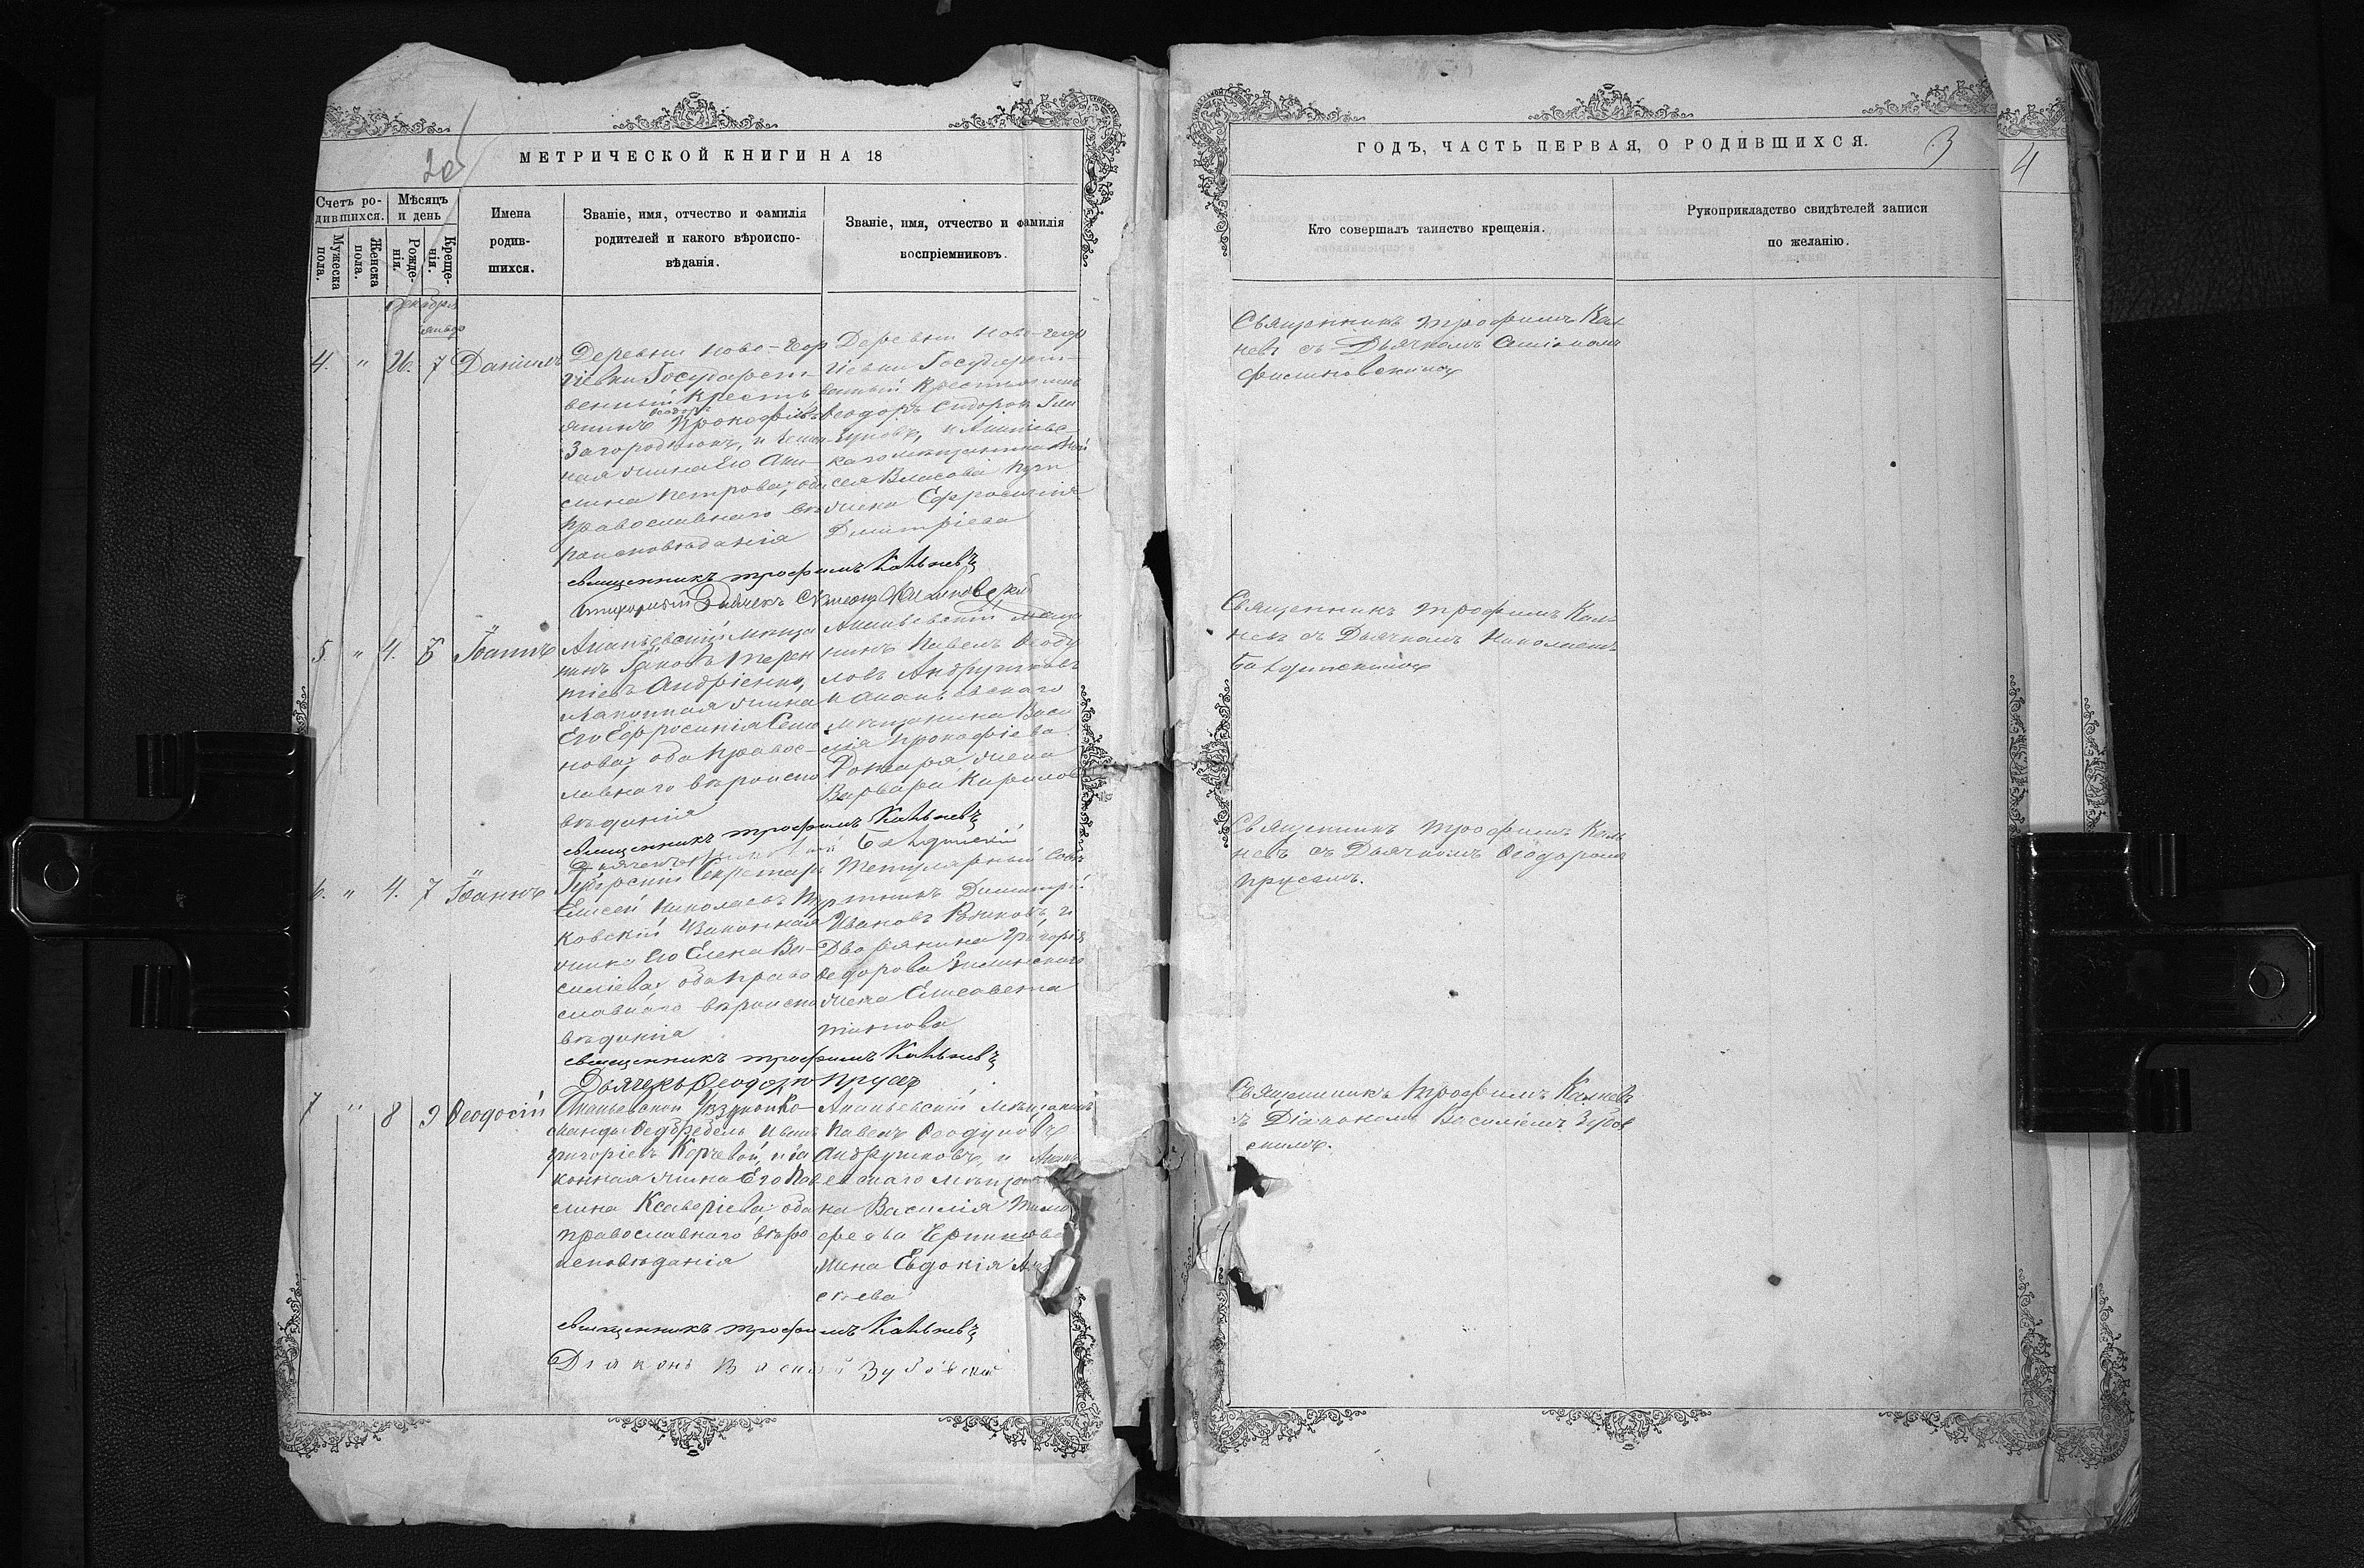 МЕТРИЧЕСКОЙ КНИГИ НА 18
Счетъ ро-
дившихся.
Мужеска
пола.
Женска
пола.
Мѣсяцъ
и день
Рожде-
нія.
Креще-
нія.
Имена
родив-
шихся.
Званіе, имя, отчество и фамилія
родителей и какого вѣроиспо-
вѣданія.
Званіе, имя, отчество и фамилія
воспріемниковъ.
Декабря
4. " 26. 7 Даніилъ
Деревни Ново-Геор
гіевки Государст-
венный Кресть
янинъ Прокофіевъ
Загороднюкъ, и
ная жена Его
Петрова, оба
православнаго вѣ
роисповѣданія
Деревни Ново-Геор
гіевки Государст-
венный Крестьянинъ
Ѳеодоръ Сидоровъ
и Ананьев-
каго мѣщанина
Власова
жена Ефросинія
Димитріева
священникъ трофимъ Кальневъ
Дьячекъ Филиновскій
5. " 4. 6 Іоаннъ
Ананьевскій мѣща
нинъ Іаковъ Терен
тіевъ Андріенко,
и законная жена
Его Ефросинія Семе
нова, оба правос-
лавнаго вѣроиспо
вѣданія
Ананьевскій мѣща
нинъ Павелъ Ѳеоду
ловъ Андрушковъ
и Ананьевскаго
мѣщанина Васи
лія Прокофіева
жена
Варвара Кирилова
священникъ трофимъ Кальневъ
6. " 4. 7 Іоаннъ
Губерскій Секретарь
Елисей Николаевъ
ковскій и законная
жена Его Елена Ва-
силіева, оба право
славнаго вѣроиспо
вѣданія
Титулярный Совѣ
тникъ Димитрій
Ивановъ и
Дворянина Григорія
Ѳедорова
жена Елисавета
священникъ трофимъ Кальневъ
Дьячекъ Ѳеодоръ Прусъ
7 " 8 9 Ѳеодосій
Ананьевской Уѣздной Ко-
манды Фелдфебель Иванъ
Григоріевъ Корчевой, и за
конная жена Его
Ксаверіева, оба
православнаго вѣро
исповѣданія
Ананьевскій мѣщанинъ
Павелъ Ѳеодуловъ
Андрушковъ, и Анань
евскаго мѣща
на Василія Тимо
феева
жена Евдокія
священникъ трофимъ Кальневъ
Діяконъ Василій Зубовскій
ГОДЪ, ЧАСТЬ ПЕРВАЯ, О РОДИВШИХСЯ.
3
4
Кто совершалъ таинство крещенія.
Рукоприкладство свидѣтелей записи
по желанію.
Священникъ Трофимъ Кал-
невъ съ Дьячкомъ Симіономъ
Филиновскимъ
Священникъ Трофимъ Каль-
невъ съ Дьячкомъ Николаемъ
Священникъ Трофимъ Каль
невъ съ Дьячкомъ Ѳеодоромъ
Прусомъ.
Священникъ Трофимъ Калневъ
съ Діакономъ Василіемъ Зубов
скимъ.